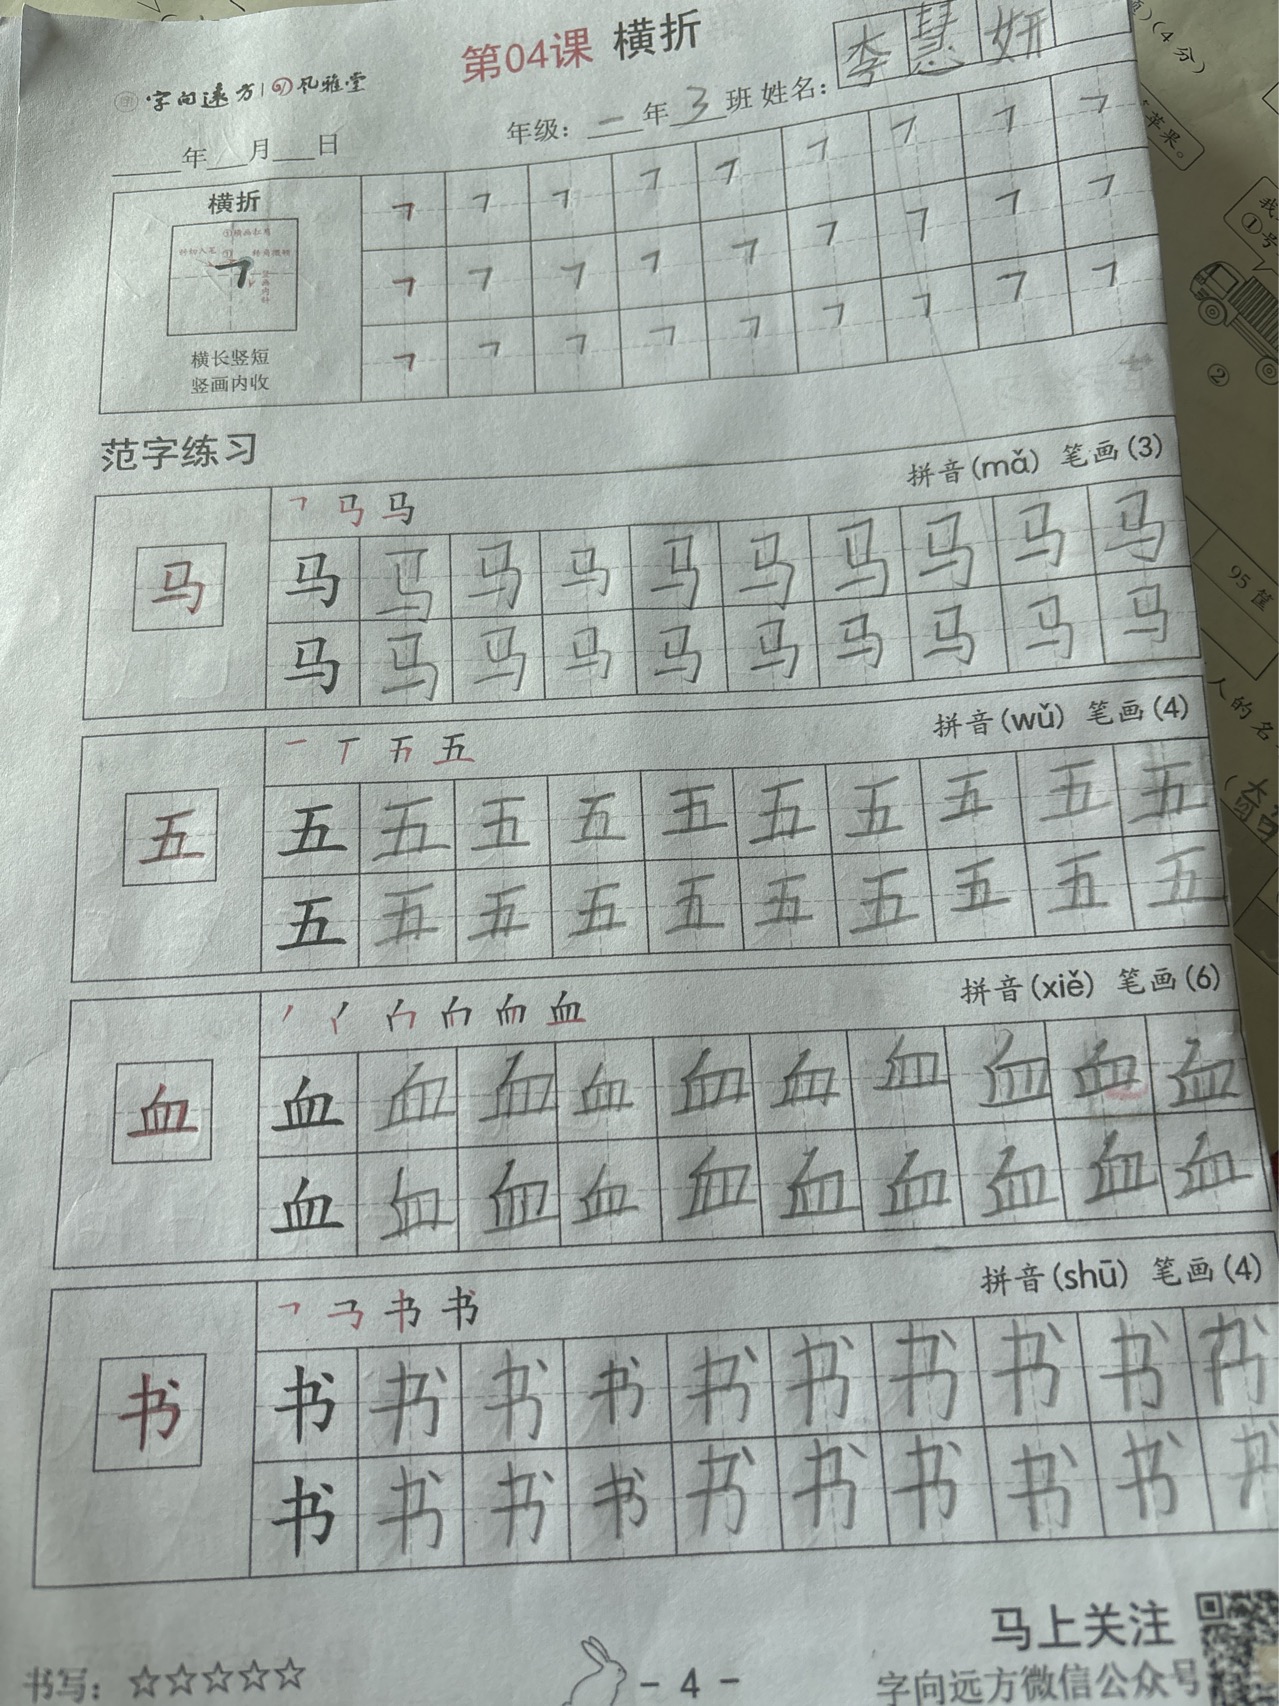 第04课 横折
字向远方 风雅堂
年级：一年3班 姓名：李慧妍
年 月 日
横折
横长竖短
竖画内收
范字练习
拼音(mǎ) 笔画(3)
马
马 马 马 马 马 马 马 马 马 马
马 马 马 马 马 马 马 马 马 马
拼音(wǔ) 笔画(4)
五
五 五 五 五 五 五 五 五 五 五
五 五 五 五 五 五 五 五 五 五
拼音(xiě) 笔画(6)
血
血 血 血 血 血 血 血 血 血 血
血 血 血 血 血 血 血 血 血 血
拼音(shū) 笔画(4)
书
书 书 书 书 书 书 书 书 书 书
书 书 书 书 书 书 书 书 书 书
马上关注
字向远方微信公众号
书写：☆☆☆☆☆
- 4 -
(4分)
苹果。
我
①号
②
95筐
人的名